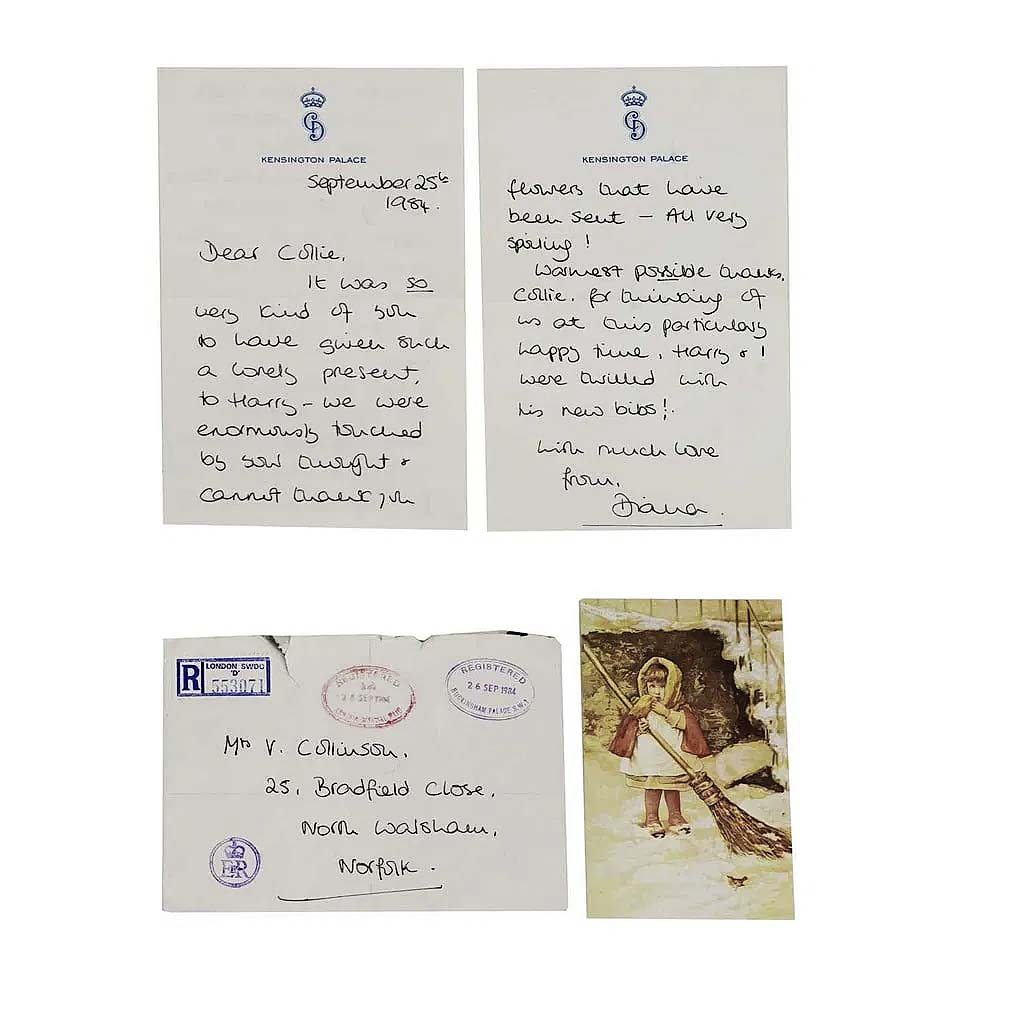 KENSINGTON PALACE
September 25th
1984.
Dear Collie,
It was so
very kind of you
to have given such
a lovely present,
to Harry - we were
enormously touched
by your thought &
cannot thank you
KENSINGTON PALACE
flowers that have
been sent - All very
spoiling!
Warmest possible thanks,
Collie, for thinking of
us at this particulary
happy time, Harry & I
were thrilled with
his new bibs!.
with much love
from,
Diana.
R LONDON SWDO
"D"
553071
REGISTERED
REGISTERED
26 SEP 1984
BUCKINGHAM PALACE S.W.1
Mrs V. Collinson,
25, Bradfield Close,
North Walsham,
Norfolk.
EIIR